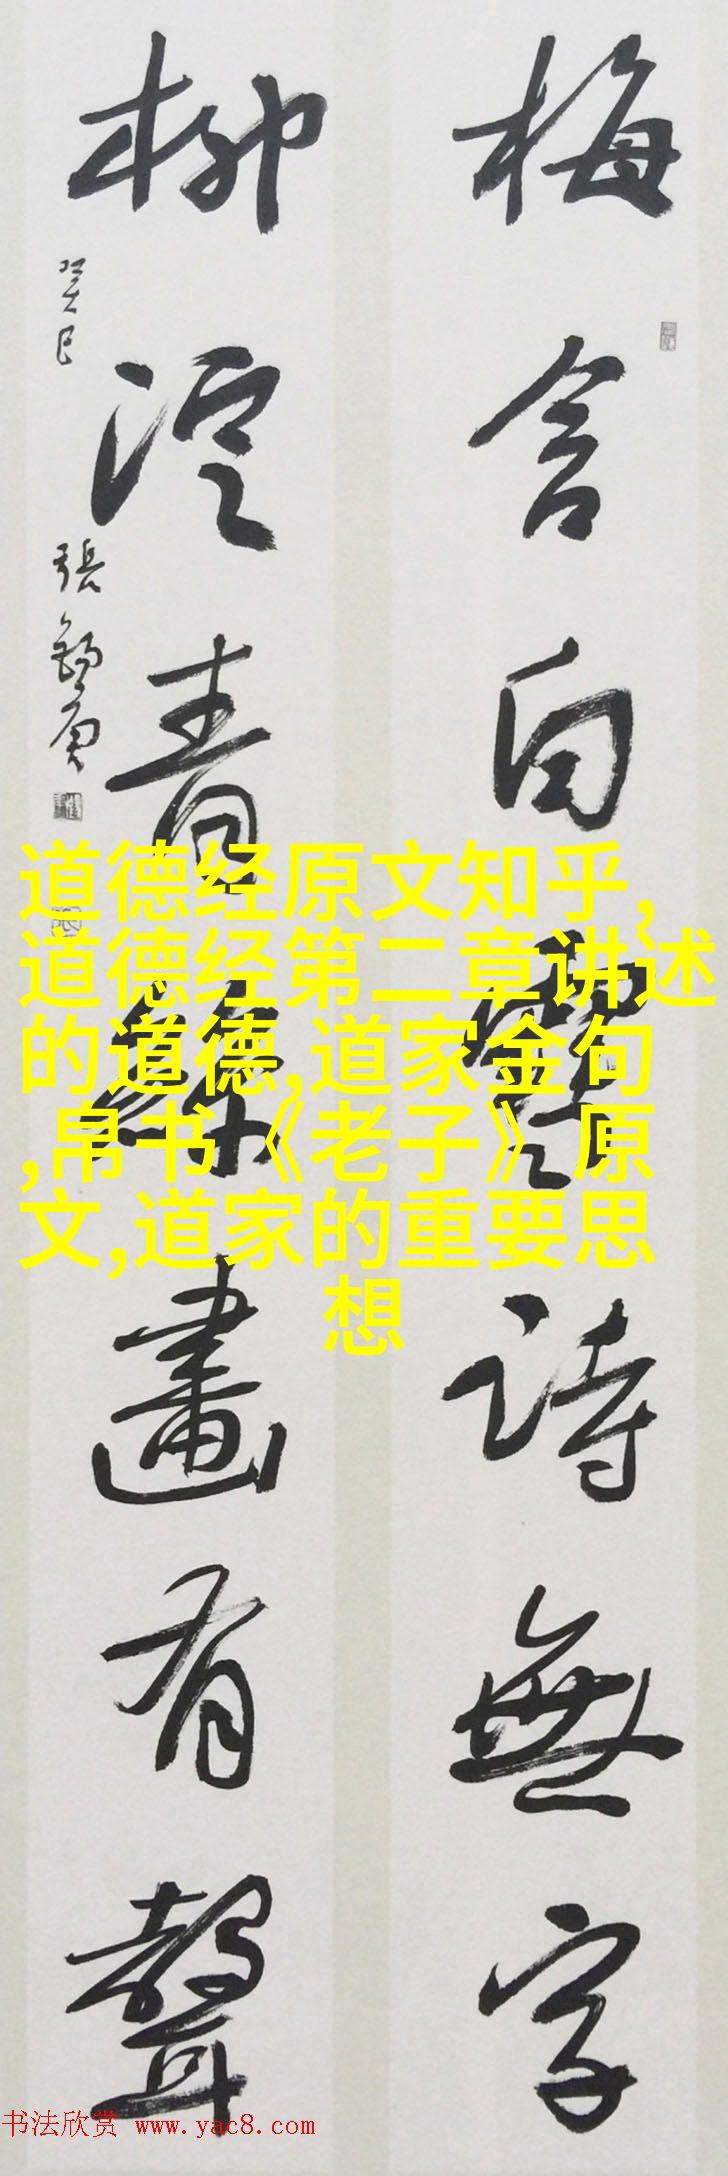 梅含白雪詩無字
柳浥青絲畫有聲
癸巳
張錫庚
道德经原文知乎,
道德经第二章讲述
的道德,道家金句
,帛书《老子》原
文,道家的重要思
想
书法欣赏 www.yac8.com